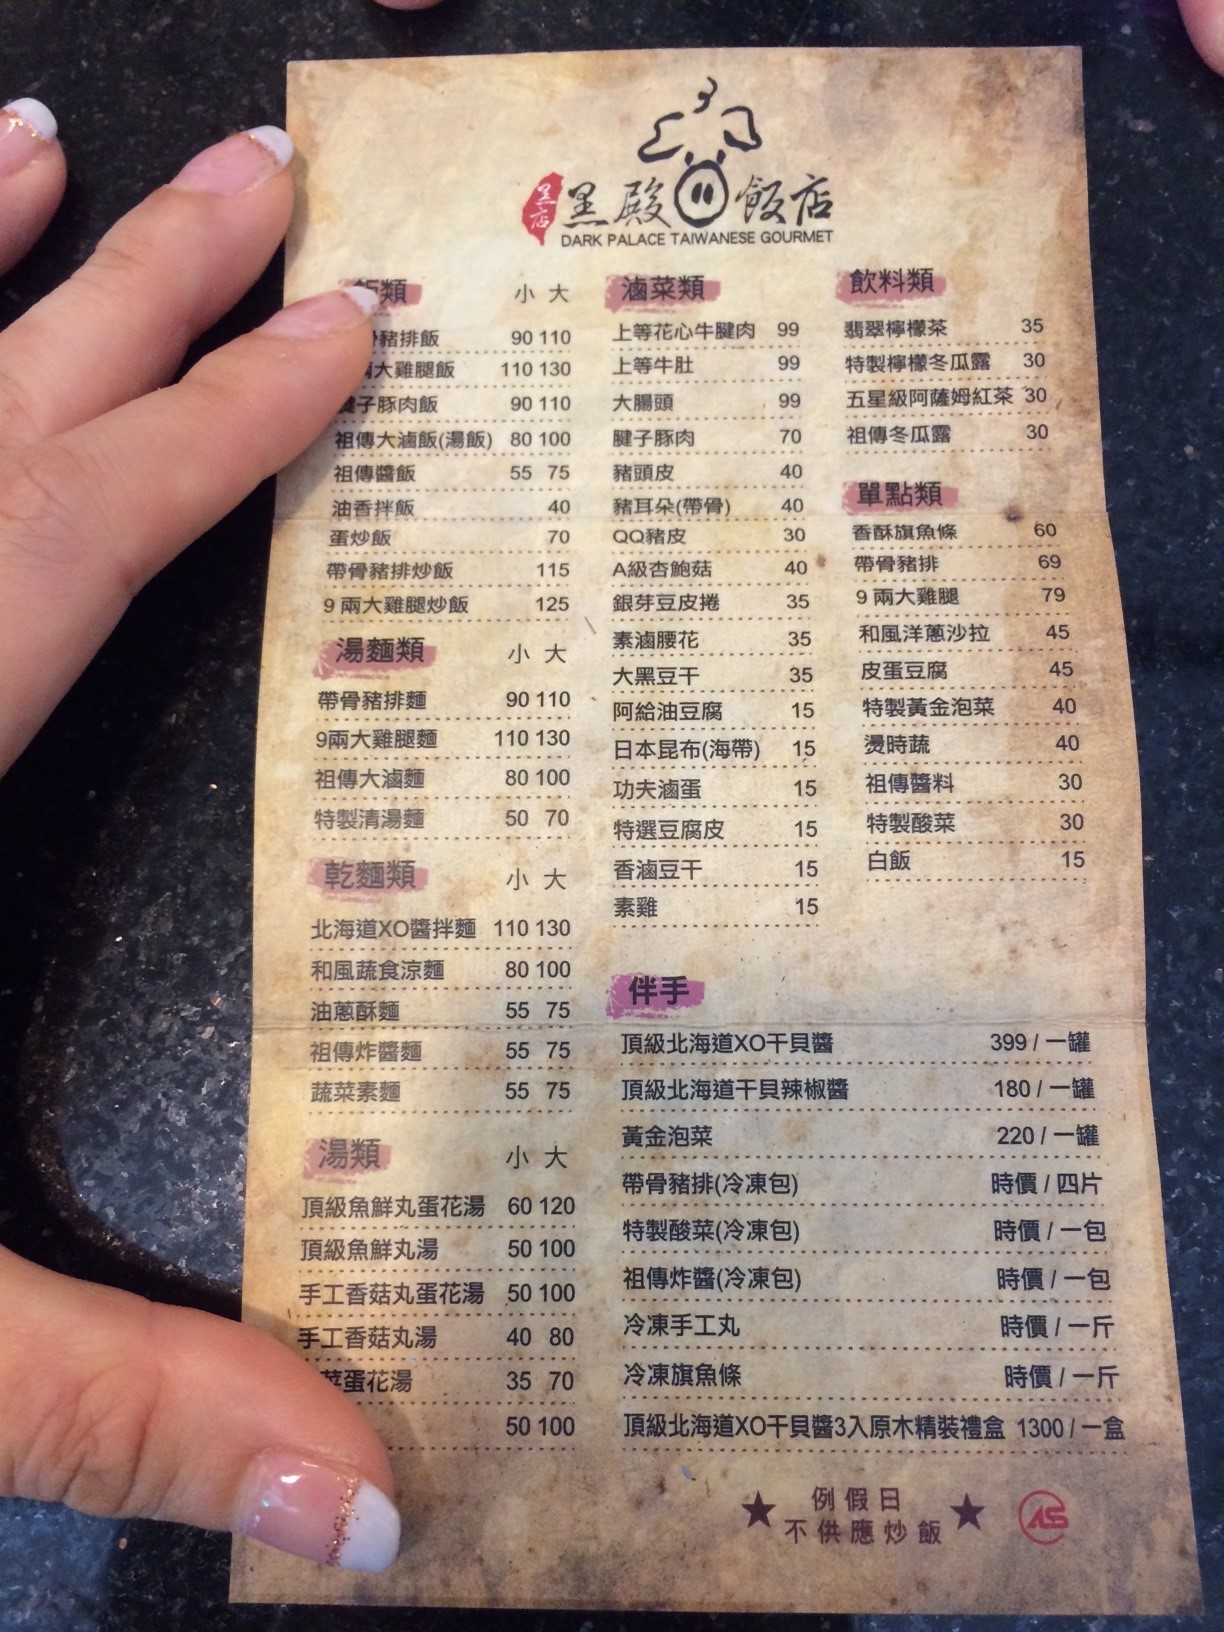 黑店
黑殿飯店
DARK PALACE TAIWANESE GOURMET
類 小 大
豬排飯 90 110
兩大雞腿飯 110 130
腱子豚肉飯 90 110
祖傳大滷飯(湯飯) 80 100
祖傳醬飯 55 75
油香拌飯 40
蛋炒飯 70
帶骨豬排炒飯 115
9 兩大雞腿炒飯 125
湯麵類 小 大
帶骨豬排麵 90 110
9兩大雞腿麵 110 130
祖傳大滷麵 80 100
特製清湯麵 50 70
乾麵類 小 大
北海道XO醬拌麵 110 130
和風蔬食涼麵 80 100
油蔥酥麵 55 75
祖傳炸醬麵 55 75
蔬菜素麵 55 75
湯類 小 大
頂級魚鮮丸蛋花湯 60 120
頂級魚鮮丸湯 50 100
手工香菇丸蛋花湯 50 100
手工香菇丸湯 40 80
菜蛋花湯 35 70
50 100
滷菜類
上等花心牛腱肉 99
上等牛肚 99
大腸頭 99
腱子豚肉 70
豬頭皮 40
豬耳朵(帶骨) 40
QQ豬皮 30
A級杏鮑菇 40
銀芽豆皮捲 35
素滷腰花 35
大黑豆干 35
阿給油豆腐 15
日本昆布(海帶) 15
功夫滷蛋 15
特選豆腐皮 15
香滷豆干 15
素雞 15
飲料類
翡翠檸檬茶 35
特製檸檬冬瓜露 30
五星級阿薩姆紅茶 30
祖傳冬瓜露 30
單點類
香酥旗魚條 60
帶骨豬排 69
9 兩大雞腿 79
和風洋蔥沙拉 45
皮蛋豆腐 45
特製黃金泡菜 40
燙時蔬 40
祖傳醬料 30
特製酸菜 30
白飯 15
伴手
頂級北海道XO干貝醬 399 / 一罐
頂級北海道干貝辣椒醬 180 / 一罐
黃金泡菜 220 / 一罐
帶骨豬排(冷凍包) 時價 / 四片
特製酸菜(冷凍包) 時價 / 一包
祖傳炸醬(冷凍包) 時價 / 一包
冷凍手工丸 時價 / 一斤
冷凍旗魚條 時價 / 一斤
頂級北海道XO干貝醬3入原木精裝禮盒 1300 / 一盒
★ 例假日 ★
不供應炒飯